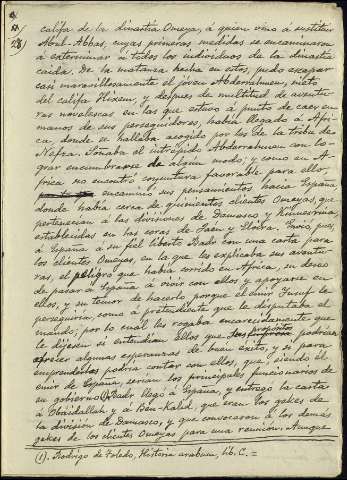 28)
califa de la dinastía Omeya, á quien vino á sustituir
Abul-Abbas, cuyas primeras medidas se encaminaron
á exterminar á todos los individuos de la dinastía
caída. De la matanza hecha en estos, pudo escapar
casi maravillosamente el jóven Abderrahmen, nieto
del califa Hixem, y despues de multitud de aventu-
ras novelescas en las que estuvo á punto de caer en
manos de sus perseguidores, había llegado á Afri-
ca, donde se hallaba acogido por los de la tribu de
Nefza. Soñaba el intrépido Abderrahmen con lo-
grar encumbrarse de algún modo; y como en A-
frica no encontró coyuntura favorable para ello,
encaminó sus pensamientos hacia España
donde había cerca de quinientos clientes Omeyas, que
pertenecían á las divisiones de Damasco y Kinnesrina
establecidas en las coras de Jaen y Elvira. Envió, pues,
á España á su fiel liberto Badr con una carta para
los clientes Omeyas, en la que les explicaba sus aventu-
ras, el peligro que había corrido en Africa, su deseo
de pasar á España á vivir con ellos y apoyarse en
ellos, y su temor de hacerlo porque el emir Yusuf le
perseguiría, como á pretendiente que le disputaba el
mando; por lo cuál les rogaba encarecidamente que
le dijesen si entendían ellos que sus propósitos podrían
ofrecer algunas esperanzas de buen éxito, y si para
emprenderlos podría contar con ellos, que, siendo él
emir de España, serían los principales funcionarios de
su gobierno(1). Badr llegó á España, y entregó la carta
á Obaidallah y á Ben-Kalid, que eran los gefes de
la división de Damasco, y que convocaron á los demás
gefes de los clientes Omeyas para una reunion. Aunque
(1). Rodrigo de Toledo, Historia arabum, lib. C. =